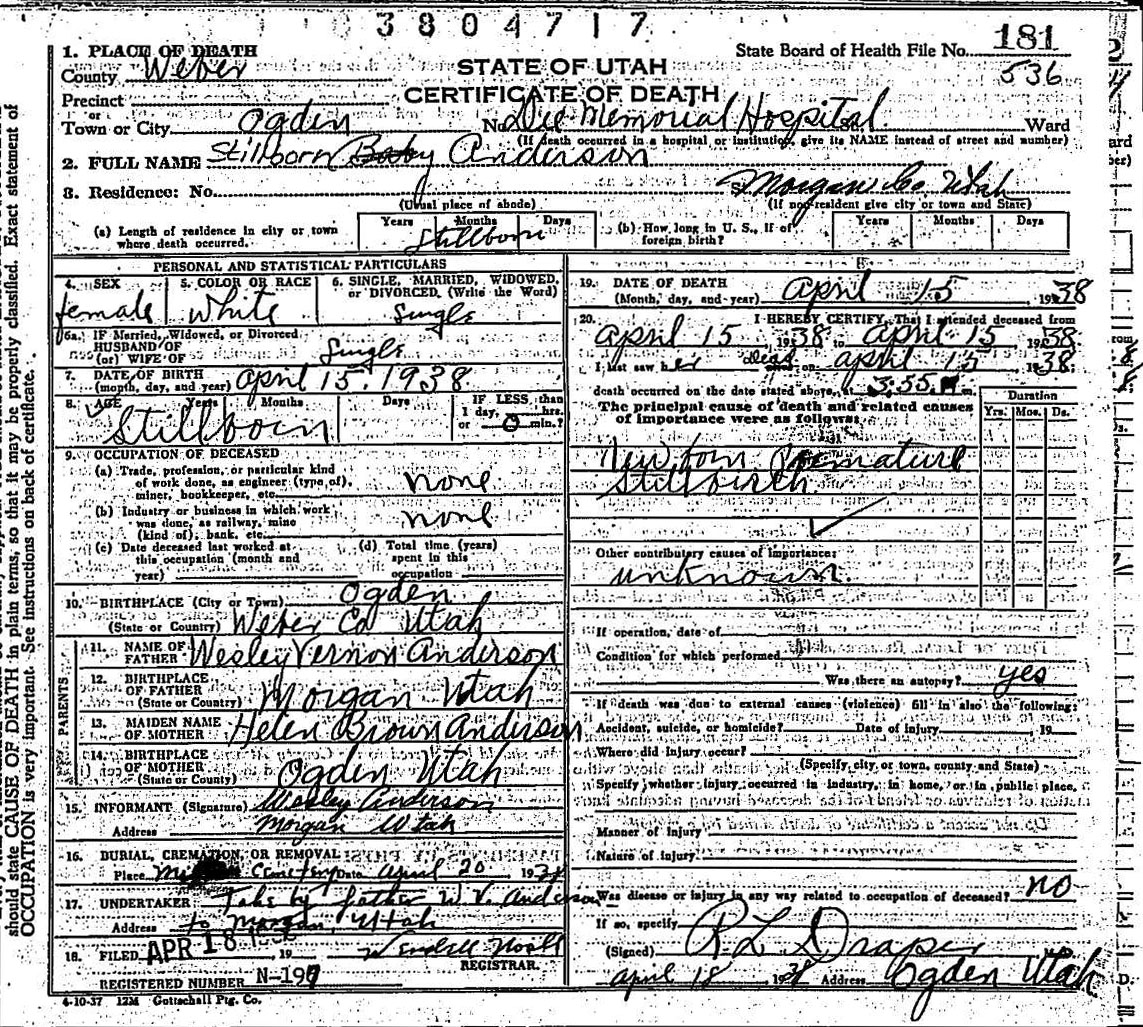 3804717
1. PLACE OF DEATH
State Board of Health File No. 181
County Weber
STATE OF UTAH
536
Precinct
CERTIFICATE OF DEATH
or
Town or City Ogden No. Dee Memorial Hospital St. Ward
(If death occurred in a hospital or institution, give its NAME instead of street and number)
2. FULL NAME Stillborn Baby Anderson
3. Residence: No. St. Morgan Co. Utah
(Usual place of abode) (If non-resident give city or town and State)
(a) Length of residence in city or town where death occurred. Years Months Days Stillborn
(b) How long in U. S., if of foreign birth? Years Months Days
PERSONAL AND STATISTICAL PARTICULARS
4. SEX 5. COLOR OR RACE 6. SINGLE, MARRIED, WIDOWED, or DIVORCED, (Write the Word)
female white Single
6a. IF Married, Widowed, or Divorced
HUSBAND OF
(or) WIFE OF Single
7. DATE OF BIRTH
(month, day, and year) April 15, 1938
8. AGE Years Months Days IF LESS than
1 day, hrs.
or 0 min.?
Stillborn
9. OCCUPATION OF DECEASED
(a) Trade, profession, or particular kind
of work done, as engineer (type of),
miner, bookkeeper, etc. none
(b) Industry or business in which work
was done, as railway, mine
(kind of), bank, etc. none
(c) Date deceased last worked at
this occupation (month and
year)
(d) Total time (years)
spent in this
occupation
10. BIRTHPLACE (City or Town) Ogden
(State or Country) Weber Co Utah
PARENTS
11. NAME OF
FATHER Wesley Vernon Anderson
12. BIRTHPLACE
OF FATHER
(State or Country) Morgan Utah
13. MAIDEN NAME
OF MOTHER Helen Brown Anderson
14. BIRTHPLACE
OF MOTHER
(State or County) Ogden Utah
15. INFORMANT (Signature) Wesley Anderson
Address Morgan Utah
16. BURIAL, CREMATION, OR REMOVAL
Place Cemetery Date April 20, 1938
17. UNDERTAKER Take by father W. V. Anderson
Address to Morgan, Utah
18. FILED APR 18 19
REGISTRAR.
REGISTERED NUMBER N-197
4-10-37 12M Gottschall Ptg. Co.
19. DATE OF DEATH
(Month, day, and year) April 15 1938
20. I HEREBY CERTIFY, That I attended deceased from
April 15 1938 to April 15 1938
I last saw her dead on April 15 1938
death occurred on the date stated above, at 3:55 m.
The principal cause of death and related causes
of importance were as follows:
Duration
Yrs. Mos. Ds.
Newborn Premature
Stillbirth
Other contributory causes of importance:
unknown
If operation, date of
Condition for which performed
Was there an autopsy? yes
If death was due to external causes (violence) fill in also the following:
Accident, suicide, or homicide? Date of injury , 19
Where did injury occur?
(Specify city or town, county and State)
Specify whether injury occurred in industry, in home, or in public place,
Manner of injury
Nature of injury
Was disease or injury in any way related to occupation of deceased? no
If so, specify
(Signed) R L Draper
April 18 1938 Address Ogden Utah
should state CAUSE OF DEATH in plain terms, so that it may be properly classified. Exact statement of
OCCUPATION is very important. See instructions on back of certificate.